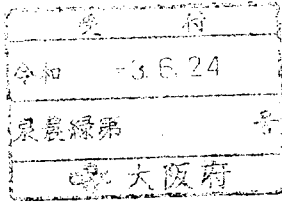 受付
令和 -3.6.24
泉農緑第 号
大阪府